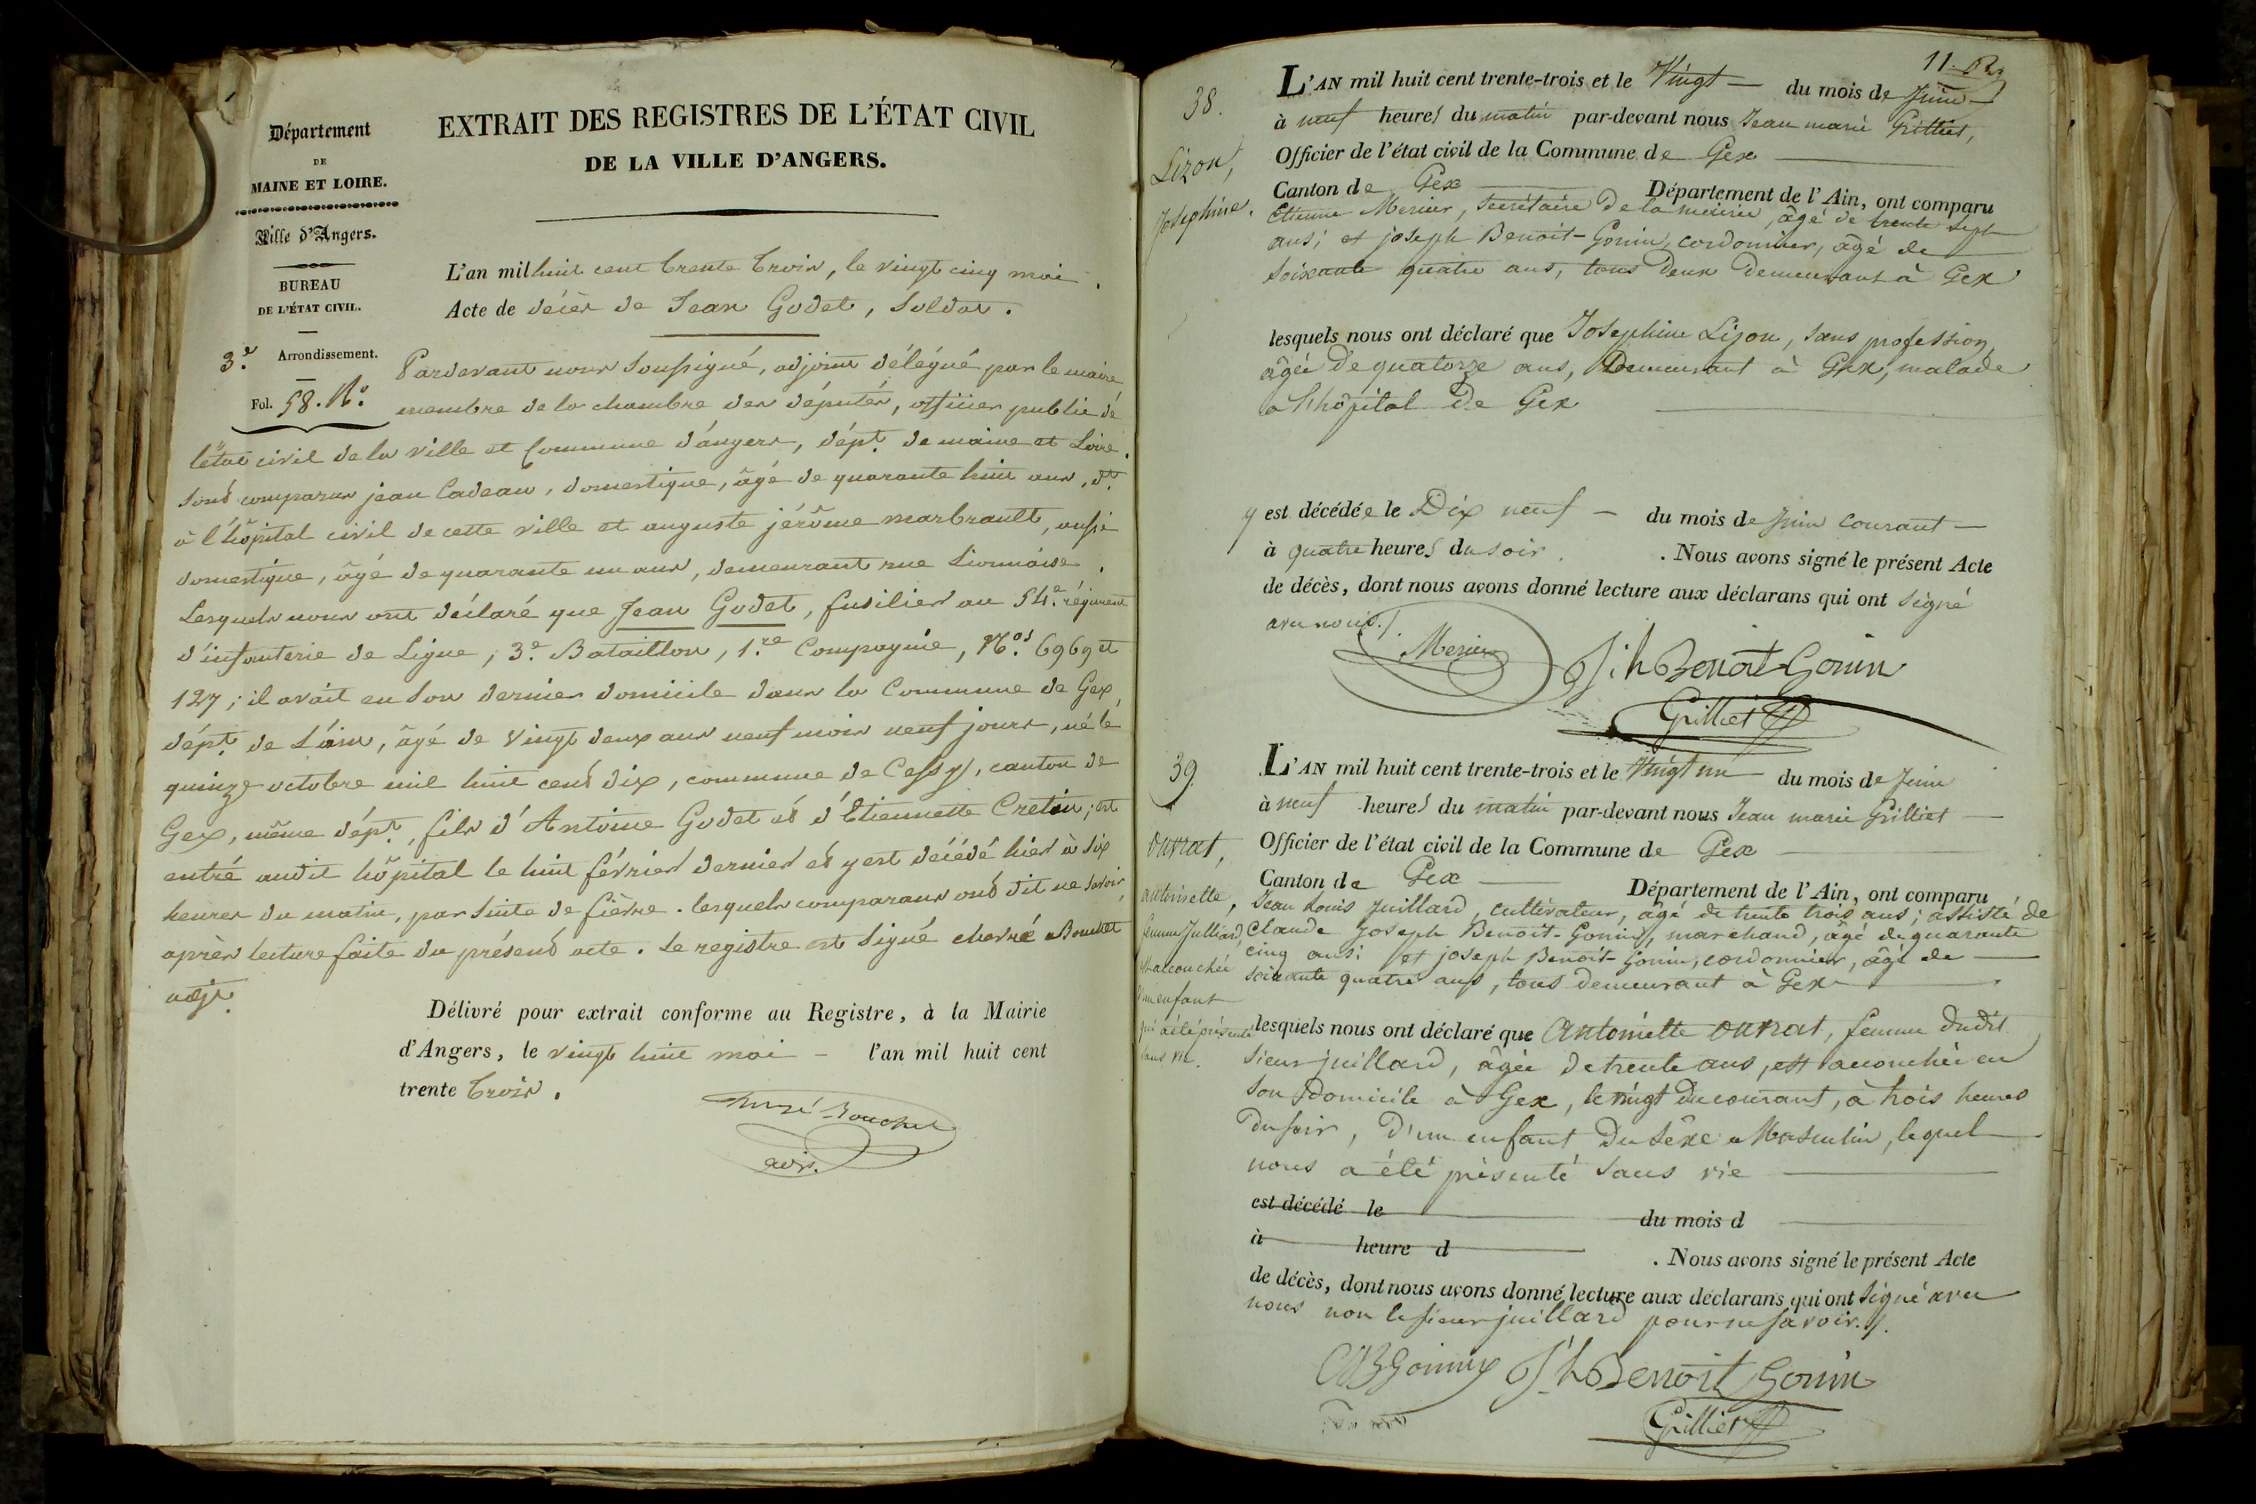 Département
DE
MAINE ET LOIRE.
Ville d'Angers.
BUREAU
DE L'ÉTAT CIVIL.
3e. Arrondissement.
Fol. 58. Ro.
EXTRAIT DES REGISTRES DE L'ÉTAT CIVIL
DE LA VILLE D'ANGERS.
L'an mil huit cent trente trois, le vingt cinq mai.
Acte de décès de Jean Godet, Soldat.
Pardevant nous soussigné, adjoint délégué par le maire
membre de la chambre des députés, officier public de
l'état civil de la ville et Commune d'angers, dépt. de maine et Loire.
sont comparus jean Cadeau, domestique, âgé de quarante huit ans, dt.
à l'hôpital civil de cette ville et auguste jérôme marbrault, aussi
domestique, âgé de quarante un ans, demeurant rue Lionnaise.
Lesquels nous ont déclaré que Jean Godet, fusilier au 54e. régiment
d'infanterie de Ligne, 3e. Bataillon, 1.re Compagnie, Nos. 6969 et
127; il avait eu son dernier domicile dans la Commune de Gex,
dépt. de L'ain, âgé de vingt deux ans neuf mois neuf jours, né le
quinze octobre mil huit cent dix, commune de Cessy, canton de
Gex, même dépt., fils d'Antoine Godet et d'Etiennette Cretin; est
entré audit hôpital le huit février dernier et y est décédé hier à six
heures du matin, par suite de fièvre. lesquels comparans ont dit ne savoir,
après lecture faite du présent acte. Le registre est signé chesné Bouchet
adjt.
Délivré pour extrait conforme au Registre, à la Mairie
d'Angers, le vingt huit mai - l'an mil huit cent
trente trois.
Bouchet
adj.
11
38.
Lizon,
Josephine.
L'AN mil huit cent trente-trois et le Vingt — du mois de Juin
à neuf heures du matin par-devant nous Jean marie Grilliet,
Officier de l'état civil de la Commune de Gex
Canton de Gex Département de l'Ain, ont comparu
Etienne Mersier, secrétaire de la mairie, âgé de trente sept
ans; et joseph Benoit-Gonin, cordonnier, âgé de
soixante quatre ans, tous deux demeurant à Gex
lesquels nous ont déclaré que Josephine Lizon, sans profession,
âgée de quatorze ans, Demeurant à Gex, malade
a l'hôpital de Gex
y est décédée le Dix neuf — du mois de Juin courant —
à quatre heures du soir. . Nous avons signé le présent Acte
de décès, dont nous avons donné lecture aux déclarans qui ont signé
avec nous./.
Mersier
Jh Benoit Gonin
Grilliet
39.
outrat,
antoinette,
femme Juillard,
d'un enfant
qui a été présenté
sans vie.
L'AN mil huit cent trente-trois et le Vingt un du mois de Juin
à neuf heures du matin par-devant nous Jean marie Grilliet —
Officier de l'état civil de la Commune de Gex
Canton de Gex Département de l'Ain, ont comparu
Jean Louis Juillard, cultivateur, âgé de trente trois ans; assisté de
Claude Joseph Benoit-Gonin, marchand, âgé de quarante
cinq ans; et joseph Benoit-Gonin, cordonnier, âgé de —
soixante quatre ans, tous demeurant à Gex
lesquels nous ont déclaré que Antoinette outrat, femme dudit
sieur juillard, âgée de trente ans, est accouchée en
son domicile à Gex, le vingt du courant, à trois heures
du soir, d'un enfant du sèxe Masculin, lequel
nous a été présenté sans vie
est décédé le du mois d
à heure d . Nous avons signé le présent Acte
de décès, dont nous avons donné lecture aux déclarans qui ont signé avec
nous non le sieur juillard pour ne savoir./.
CJBGonin
Jh Benoit Gonin
Grilliet